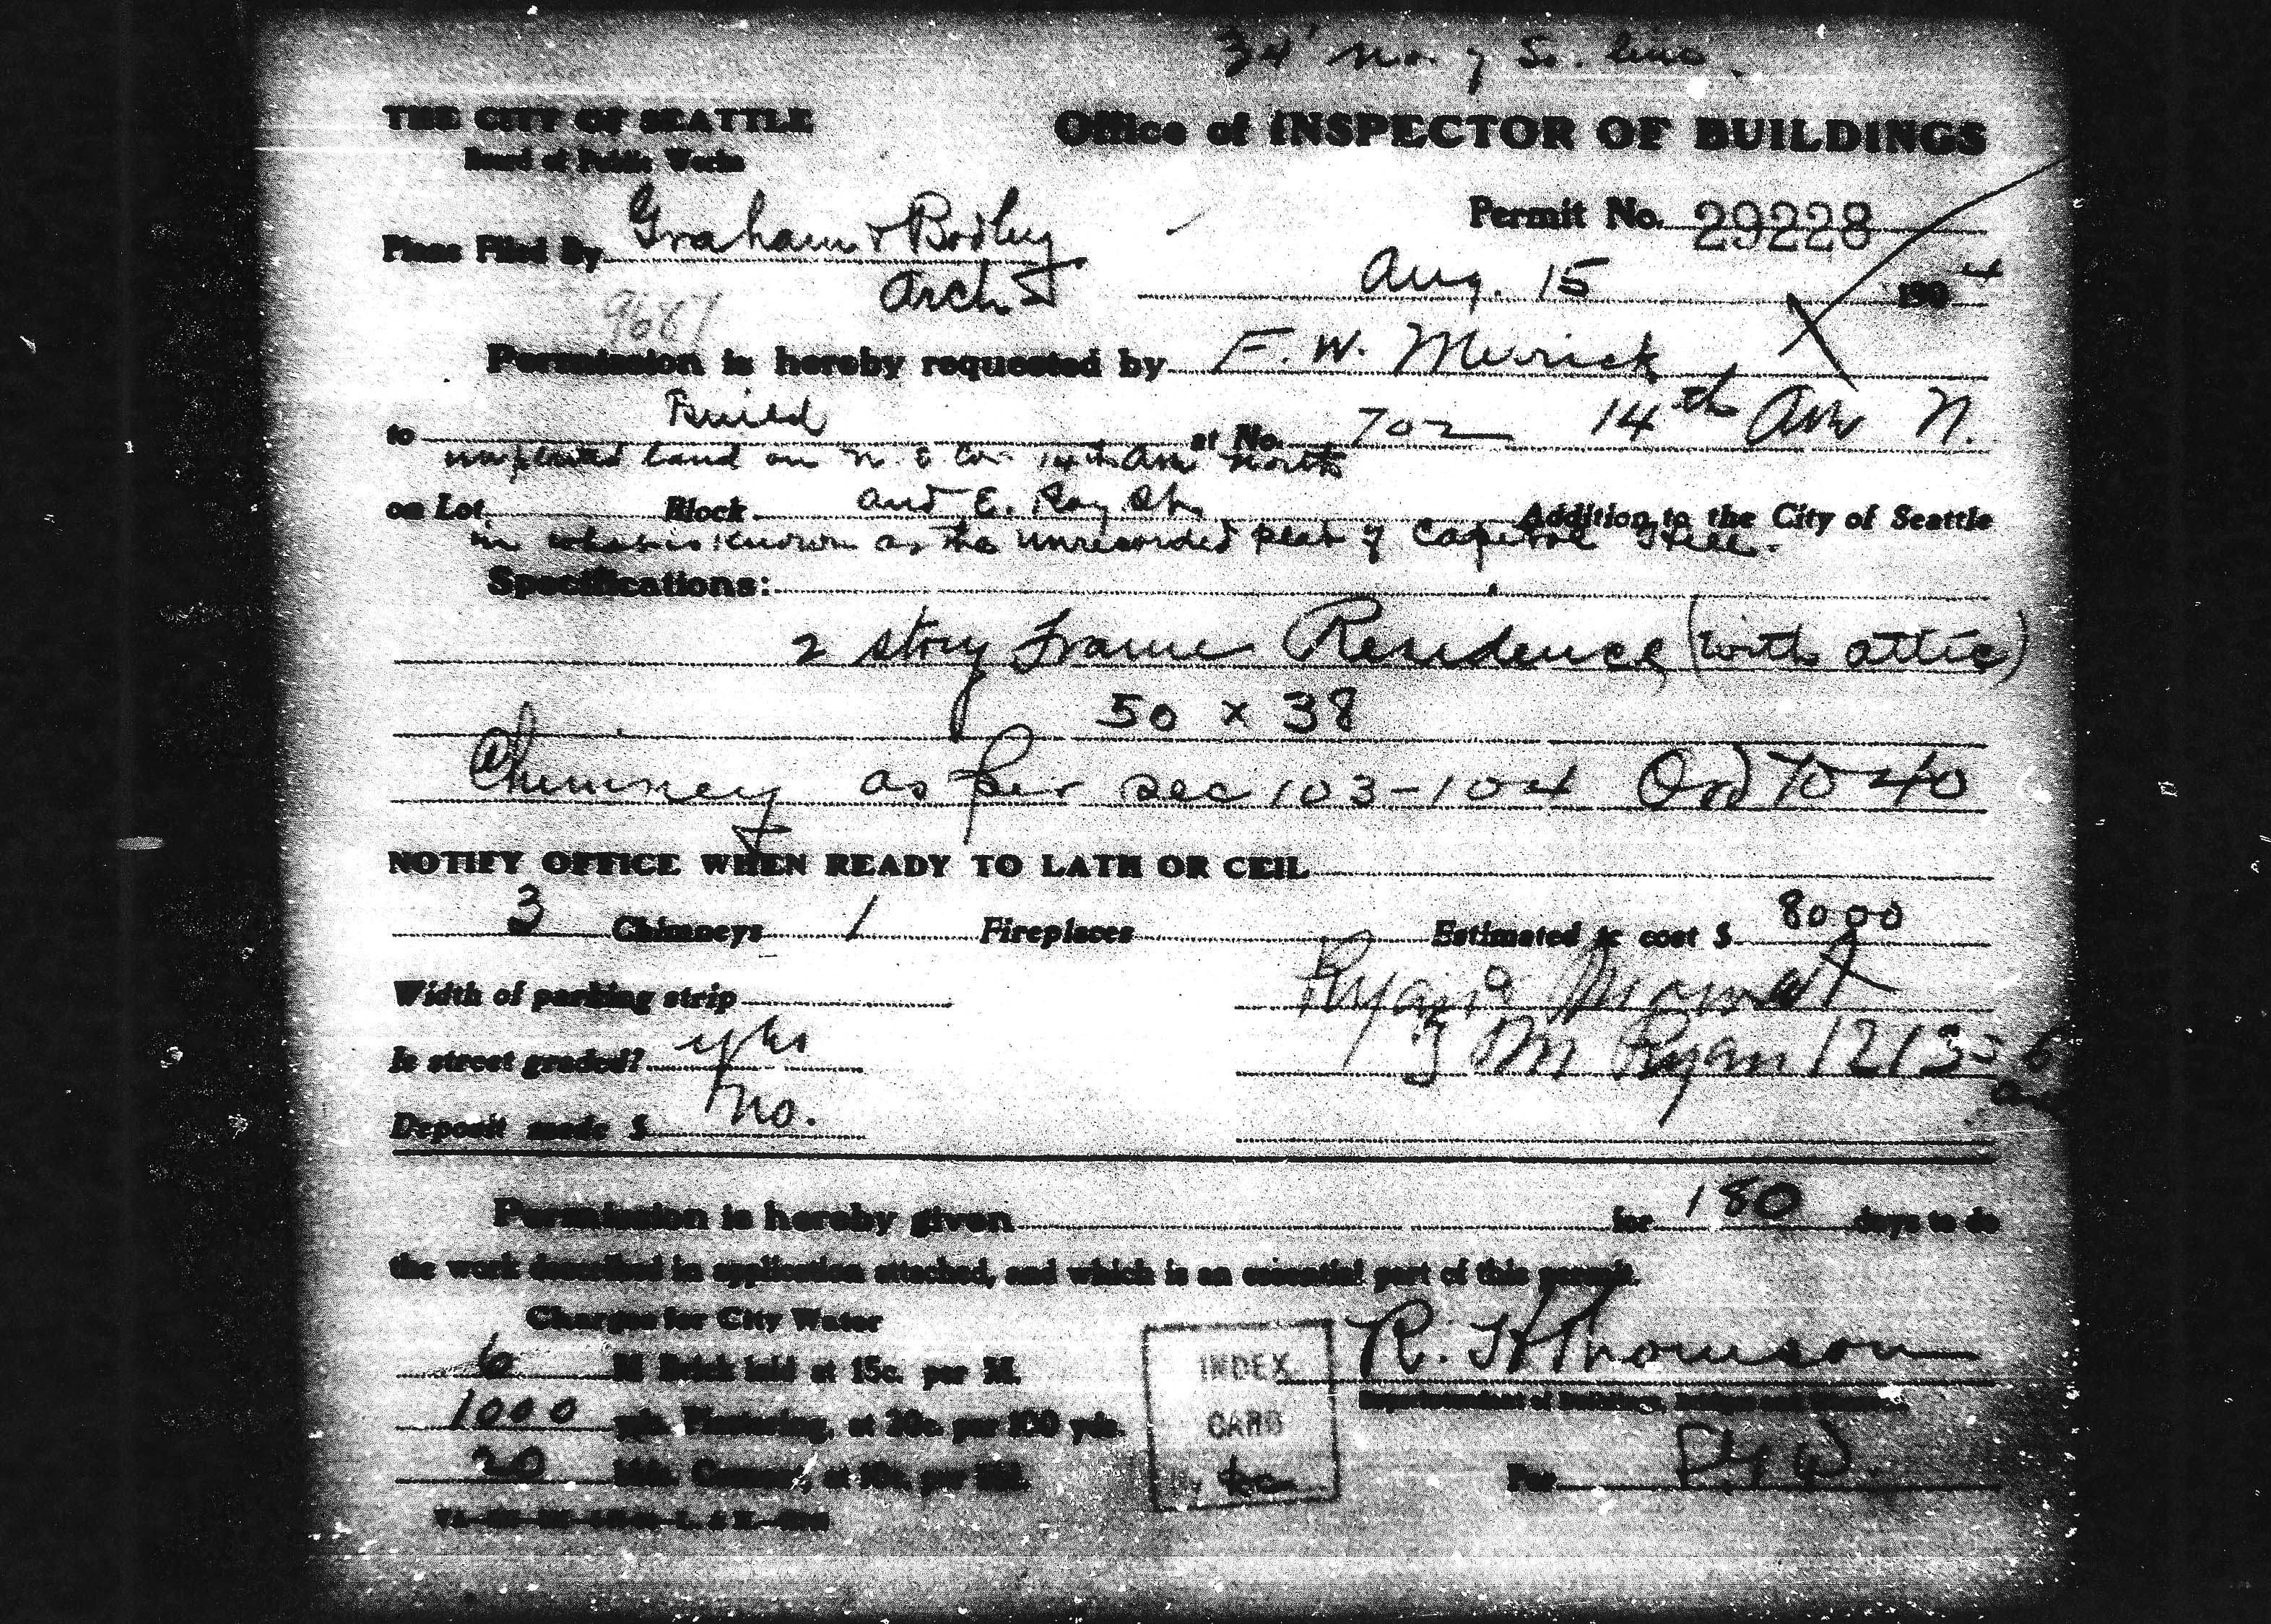 34' No. of So. line.
THE CITY OF SEATTLE
Board of Public Works
Office of INSPECTOR OF BUILDINGS
Permit No. 29228
Plans Filed By Graham &
Archts
Aug. 15 1904
9687
Permission is hereby requested by F. W. Merrick
to Build at No. 702 14th Ave N.
unplatted land on N. E Cor 14th Ave North
on Lot Block and E. Roy St. Addition to the City of Seattle
in what is known as the unrecorded plat of Capitol Hill.
Specifications:
2 story Frame Residence (with attic)
50 x 38
Chimney as per sec 103-104 Ord
NOTIFY OFFICE WHEN READY TO LATH OR CEIL
3 Chimneys 1 Fireplaces Estimated cost $ 8000
Width of parking strip
Is street graded? yes
Ryan 1213
Deposit made $ No.
Permission is hereby given for 180 days to do
the work described in application attached, and which is an essential part of this permit.
Charges for City Water
6 M Brick laid at 15c. per M.
1000 yds. Plastering, at 20c. per 100 yds.
20 bbls. Cement, at 10c. per bbl.
INDEX
CARD
R. H Thomson
Per